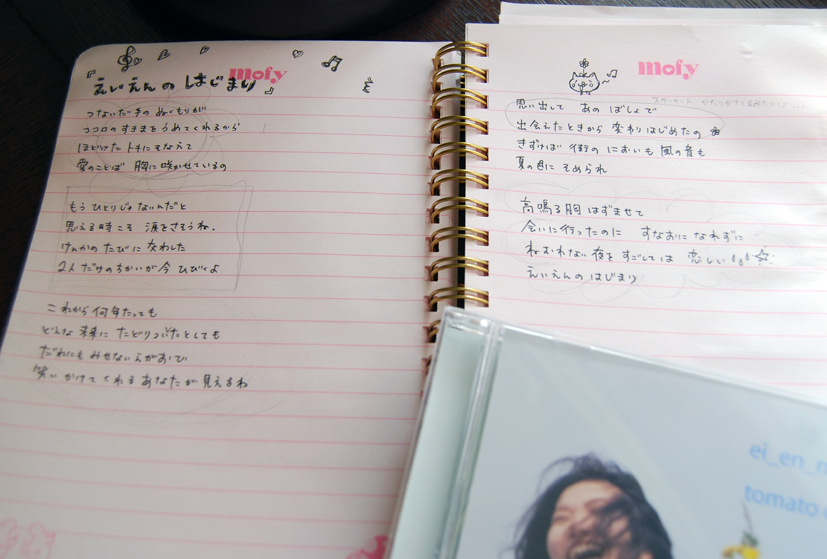 mofy
『えいえんの はじまり』
つないだ 手の ぬくもりが
ココロの すきまを うめてくれるから
ほどけた トキに そなえて
愛のことば 胸に 咲かせているの
もう ひとりじゃないんだと
思える時こそ 涙をさそうね。
けんかの たびに 交わした
2人だけのちかいが 今 ひびくよ
これから 何年たっても
どんな 未来に たどりついたとしても
だれにも みせない えがおで
笑いかけてくれる あなたが 見えるね
mofy
思い出して あの ばしょで
出会えたときから 変わりはじめたの
きずけば 街の においも 風の音も
夏の色に そめられ
高鳴る胸 はずませて
会いに行ったのに すなおに なれずに
ねむれない 夜を すごしては 恋しい
えいえんの はじまり
ei_en_n
tomato